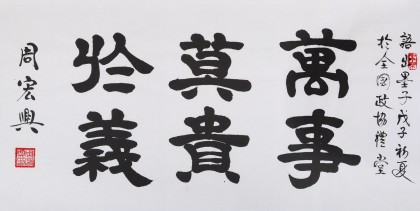 語出墨子戊子初夏
於全國政協禮堂
萬事
莫貴
於義
周宏興